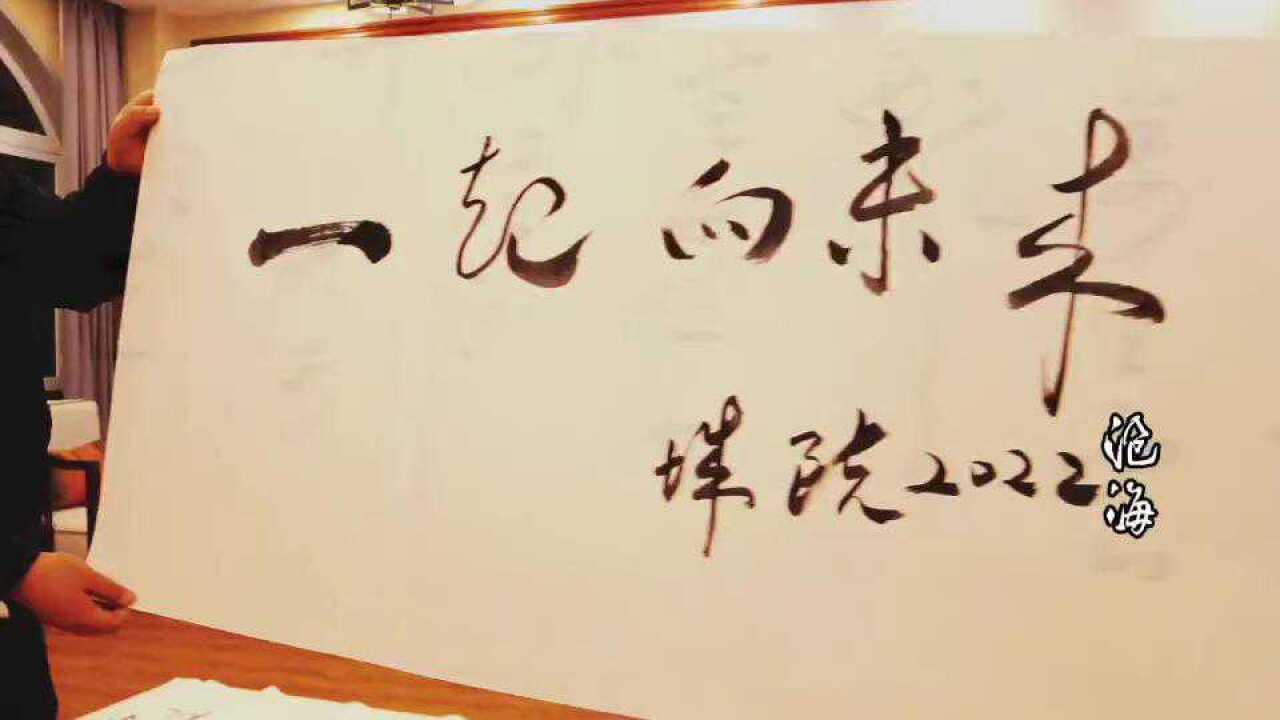 一起向未来
珠院2022
沧海